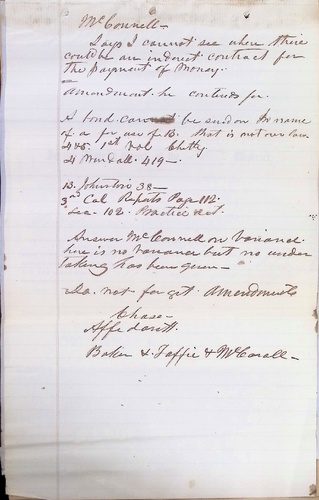 McConnell—
Says I cannot see where there
could be an indirect contract for
the payment of money.
Amendment he contends for.
A bond cannot be sued on in name
of a for use of B. that is not our law
445. 1st vol Chitty
21 Wendall 419—
13. Johnston 38—
3rd Cal Reports Page 112.
Sec. 102. Practice Act.
Answer McConnell on Variance
here is no Variance but no under
taking has been given—
Do not forget Amendments
Chase—
Affidavit.
Baker &